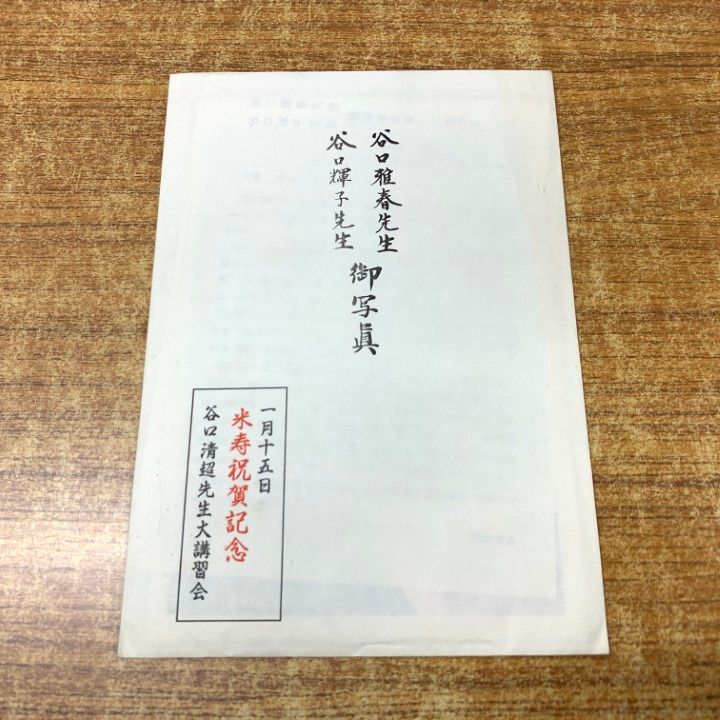 谷口雅春先生
谷口輝子先生
御写眞
一月十五日
米寿祝賀記念
谷口清超先生大講習会